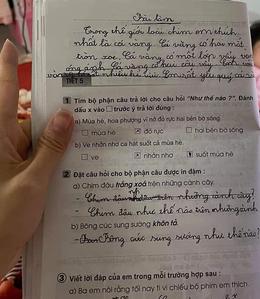 Bài làm
Trong thế giới loài chim em thích
nhất là cá vàng. Cá vàng có hai mắt
tròn xoe. Cá vàng có một lớp vảy
TIẾT 5
1 Tìm bộ phận câu trả lời cho câu hỏi "Như thế nào?". Đánh
dấu x vào □ trước ý trả lời đúng :
a) Mùa hè, hoa phượng vĩ nở đỏ rực hai bên bờ sông.
□ mùa hè x đỏ rực □ hai bên bờ sông
b) Ve nhởn nhơ ca hát suốt cả mùa hè.
□ ve x nhởn nhơ suốt mùa hè
2 Đặt câu hỏi cho bộ phận câu được in đậm :
a) Chim đậu trắng xoá trên những cành cây.
- Chim đậu trên những cành cây?
- Chim đậu như thế nào trên những cành
b) Bông cúc sung sướng khôn tả.
- Bông cúc sung sướng như thế nào?
3 Viết lời đáp của em trong mỗi trường hợp sau :
a) Ba em nói rằng tối nay ti vi chiếu bộ phim em thích.